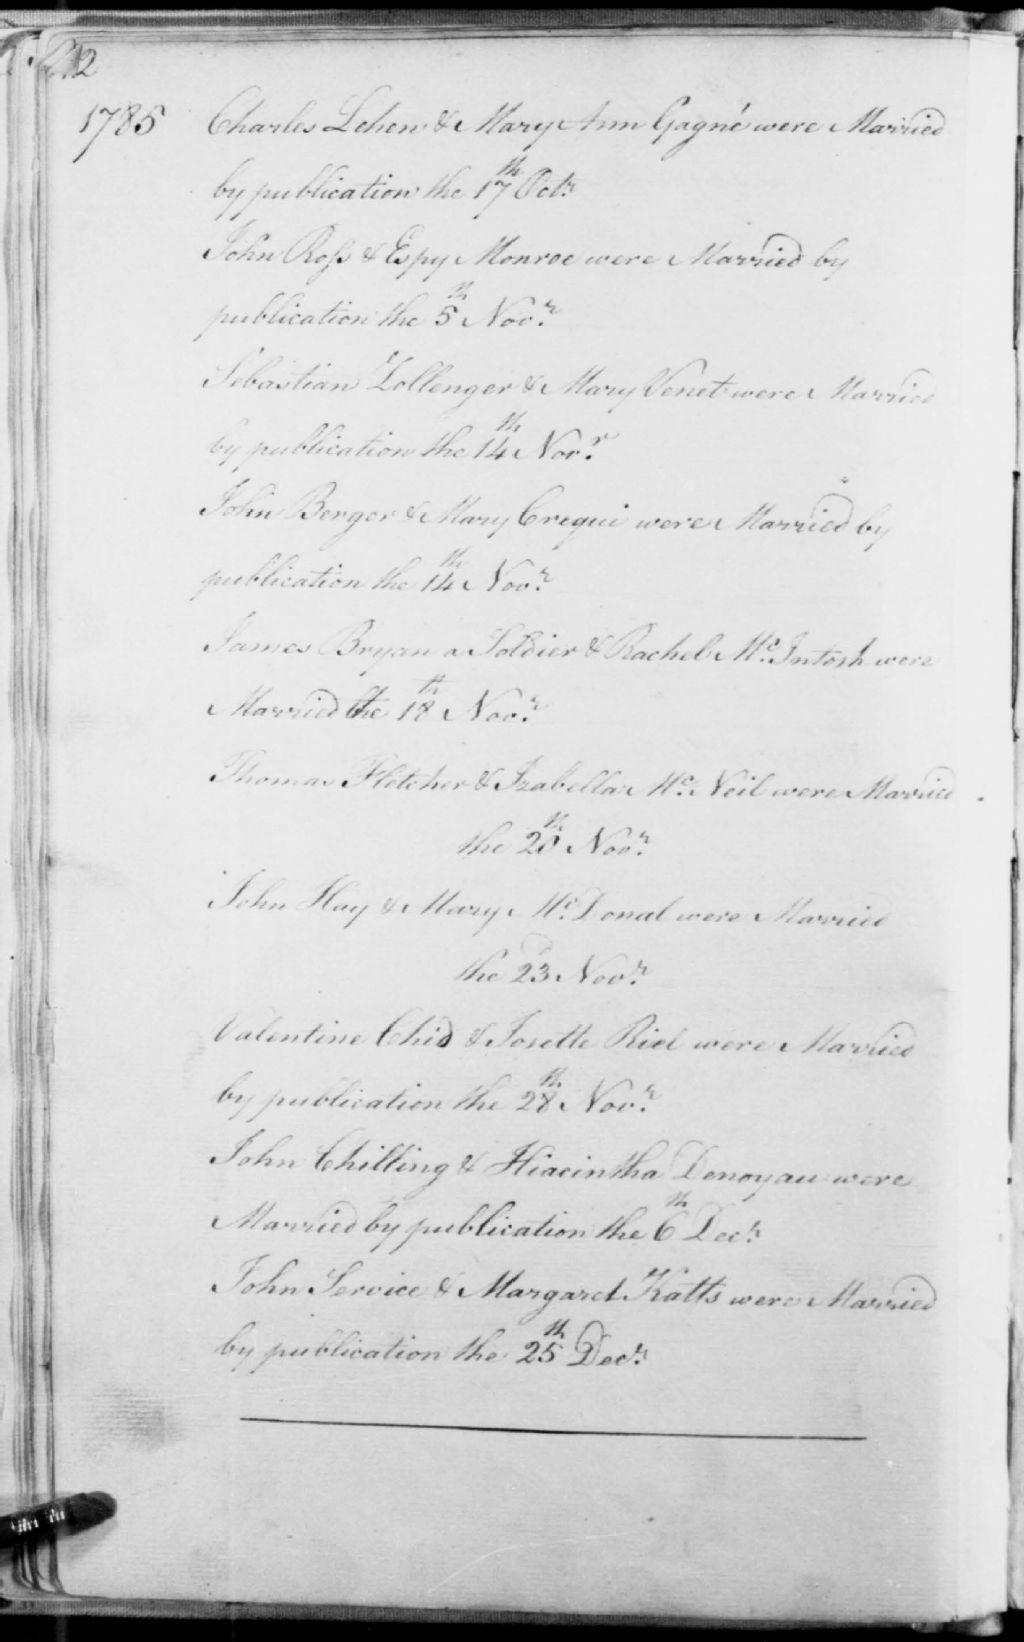 1785 Charles Lehon & Mary Ann Gagné were Married
by publication the 17th Octr.
John Ross & Espy Monroe were Married by
publication the 5th Novr.
Sebastian Zollenger & Mary Venet were Married
by publication the 14th Novr.
John Berger & Mary Crequi were Married by
publication the 14th Novr.
James Bryan a Soldier & Rachel Mc.Intosh were
Married the 18th Novr.
Thomas Fletcher & Izabella Mc.Neil were Married
the 20th Novr.
John Hay & Mary Mc.Donal were Married
the 23d Novr.
Valentine Chid & Josette Riel were Married
by publication the 28th Novr.
John Chilling & Hiacintha Denoyau were
Married by publication the 6th Decr.
John Service & Margaret Katts were Married
by publication the 25th Decr.